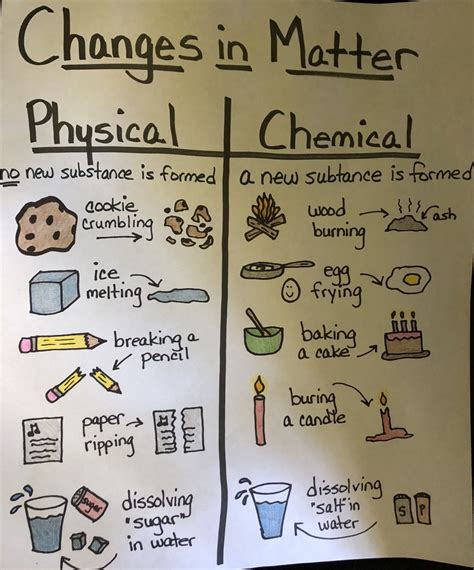 Changes in Matter
Physical
no new substance is formed
cookie
crumbling
ice
melting
breaking a
pencil
paper
ripping
sugar
dissolving
"sugar"
in water
Chemical
a new subtance is formed
wood
burning
ash
egg
frying
baking
a cake
buring
a candle
dissolving
"salt" in
water
S P